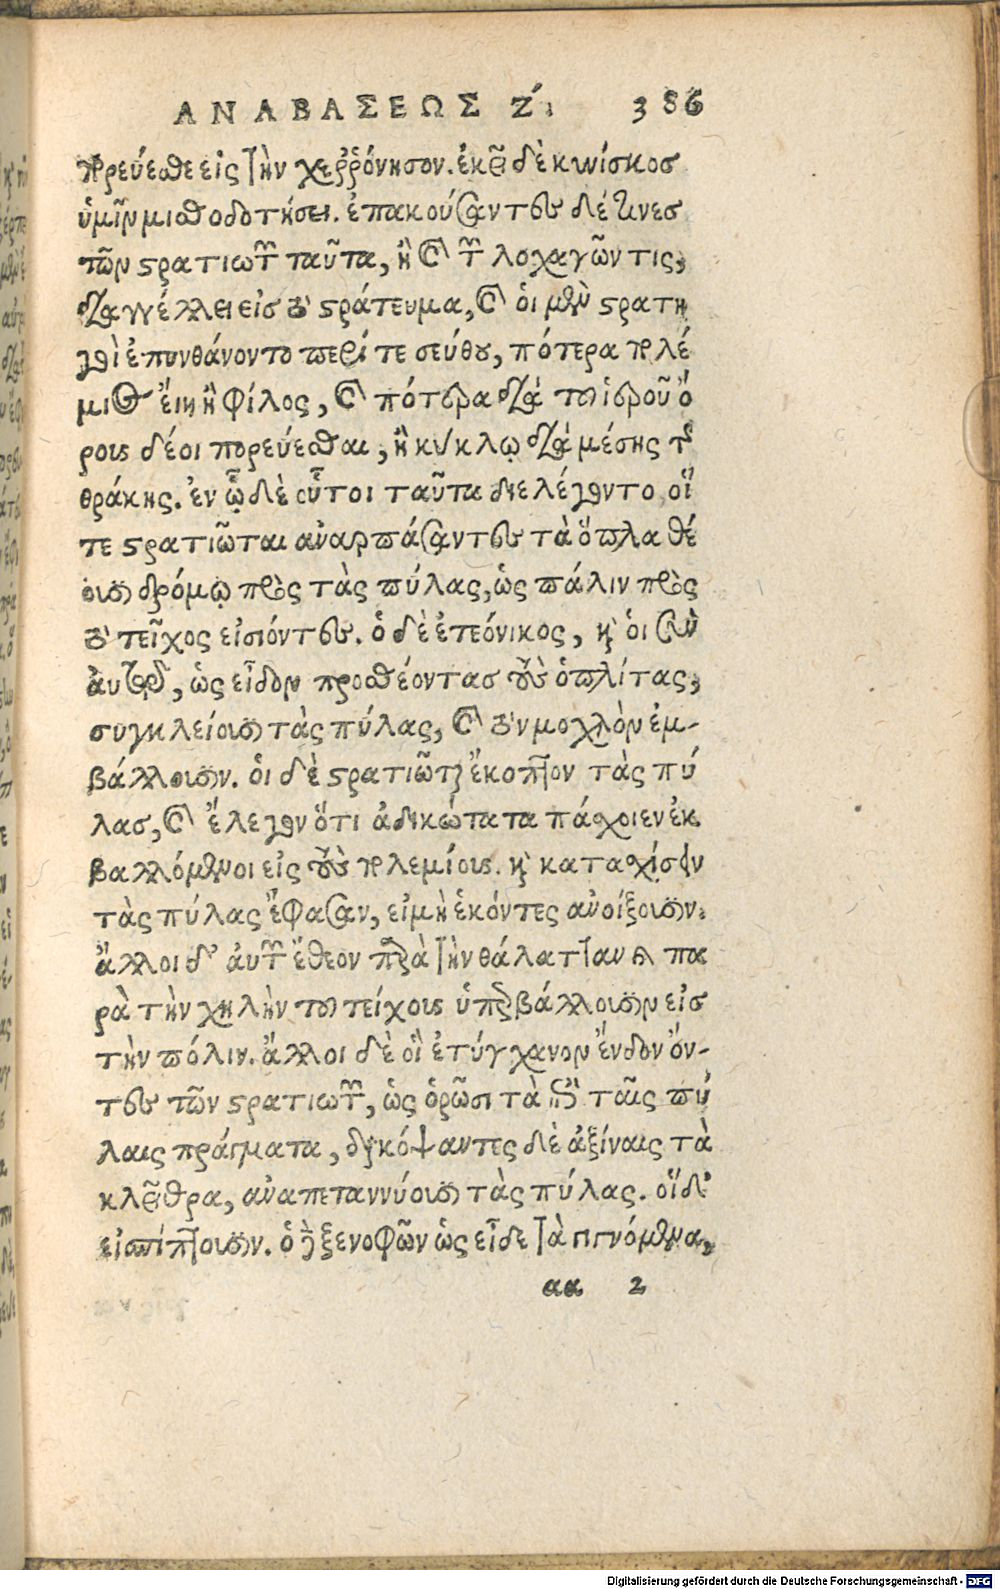 ΑΝΑΒΑΣΕΩΣ Ζ΄. 386
πορεύεσθε εἰς τὴν χερρόνησον. ἐκεῖ δὲ κυνίσκος
ὑμῖν μισθοδοτήσει. ἐπακούσαντες δέ τινες
τῶν στρατιωτῶν ταῦτα, ἢ καὶ τῶν λοχαγῶν τις,
διαγγέλλει εἰσ τὸ στράτευμα, καὶ οἱ μὲν στρατη
γοὶ ἐπυνθάνοντο περί τε σεύθου, πότερα πολέ
μιος εἴη ἢ φίλος, καὶ πότερα διὰ τοῦ ἱεροῦ ὄ
ρους δέοι πορεύεσθαι, ἢ κύκλῳ διὰ μέσης τῆς
θράκης. ἐν ᾧ δὲ οὗτοι ταῦτα διελέγοντο, οἵ
τε στρατιῶται ἀναρπάσαντες τὰ ὅπλα θέ
ουσι δρόμῳ πρὸς τὰς πύλας, ὡς πάλιν πρὸς
τὸ τεῖχος εἰσιόντες. ὁ δὲ ἐτεόνικος, καὶ οἱ σὺν
ἀυτῷ, ὡς εἶδον προσθέοντασ τοὺς ὁπλίτας,
συγκλείουσι τὰς πύλας, καὶ τὸν μοχλὸν ἐμ-
βάλλουσιν. οἱ δὲ στρατιῶται ἔκοπτον τὰς πύ
λασ, καὶ ἔλεγον ὅτι ἀδικώτατα πάσχοιεν ἐκ
βαλλόμενοι εἰς τοὺς πολεμίους. καὶ κατασχίσειν
τὰς πύλας ἔφασαν, εἰ μὴ ἑκόντες ἀνοίξουσιν.
ἄλλοι δ' ἀυτῶν ἔθεον παρὰ τὴν θάλατταν καὶ πα
ρὰ τὴν χηλὴν τοῦ τείχους ὑπερβάλλουσιν εἰσ
τὴν πόλιν. ἄλλοι δὲ οἳ ἐτύγχανον ἔνδον ὄν-
τες τῶν στρατιωτῶν, ὡς ὁρῶσι τὰ ἐπὶ ταῖς πύ
λαις πράγματα, διακόψαντες δὲ ἀξίναις τὰ
κλεῖθρα, ἀναπεταννύουσι τὰς πύλας. οἱ δ'
εἰσπίπτουσιν. ὁ δὲ ξενοφῶν ὡς εἶδε τὰ γιγνόμενα,
αα 2
Digitalisierung gefördert durch die Deutsche Forschungsgemeinschaft - DFG